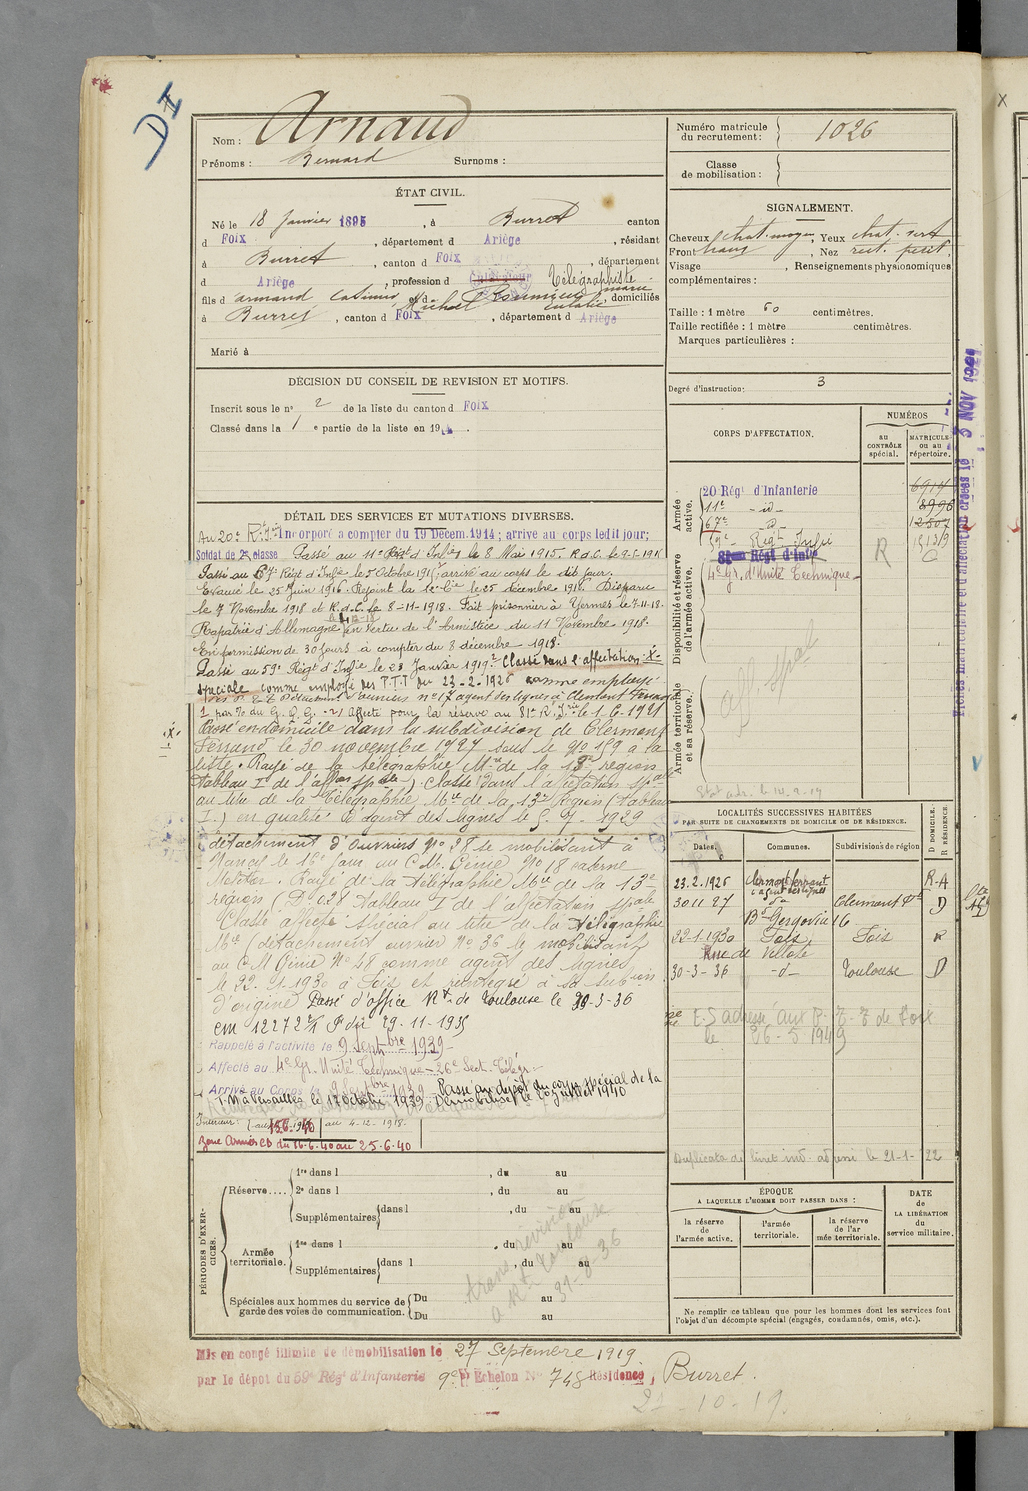 DI
Nom : Arnaud
Prénoms : Bernard Surnoms :
Numéro matricule du recrutement : 1026
Classe de mobilisation :
ÉTAT CIVIL.
Né le 18 Janvier 1895, à Burret canton
d Foix, département d Ariège, résidant
à Burret, canton d Foix, département
d Ariège, profession d Cultivateur Télégraphiste
fils d Armand, Casimir, et d Roumieu Marie
Eulalie, domiciliés
à Burret, canton d Foix, département d Ariège
Marié à
SIGNALEMENT.
Cheveux chat. moyen, Yeux chat. vert
Front haut, Nez rect. petit,
Visage , Renseignements physionomiques
complémentaires :
Taille : 1 mètre 60 centimètres.
Taille rectifiée : 1 mètre centimètres.
Marques particulières :
Degré d'instruction : 3
DÉCISION DU CONSEIL DE REVISION ET MOTIFS.
Inscrit sous le n° 2 de la liste du canton d Foix
Classé dans la 1 e partie de la liste en 191 .
DÉTAIL DES SERVICES ET MUTATIONS DIVERSES.
Au 20e R. Inf Incorporé a compter du 19 Décem. 1914 ; arrive au corps ledit jour;
Soldat de 2e classe Passé au 11e Régt d'Infie le 8 Mai 1915. R.d.C. le 9-5-1915
Passé au 67e Régt d'Infie le 5 Octobre 1915, arrivé au corps le dit jour.
Evacué le 25 Juin 1916. Rejoint la 12e Cie le 25 décembre 1916. Disparu
le 7 Novembre 1918 et R.d.C. le 8-11-1918. Fait prisonnier à Yermes le 7-11-18.
Rapatrié d'Allemagne en vertu de l'Armistice du 11 Novembre 1918.
En permission de 30 jours à compter du 8 décembre 1918.
Passé au 59e Régt d'Infie le 23 Janvier 1919. Classé dans l'affectation -X-
spéciale comme employé des P.T.T. du 23-2-1926 comme employé
ouvriers n° 17 agent des lignes à Clermont Ferrand
1 par % du G. Q. G. -2) Affecté pour la réserve au 81e R. Infie le 1-6-1921
Passé en domicile dans la subdivision de Clermont
Ferrand le 30 novembre 1927 sous le N° 159 à la
liste. Rayé de la télégraphie Mre de la 13e région
Tableau I de l'affon spale). Classé dans l'affectation spale
au titre de la Télégraphie Mre de la 13e Région (Tableau
I.) en qualité d'agent des lignes le 5-7-1929
détachement d'ouvriers N° 28 se mobilisant à
Nancy le 16e jour au C. M. Génie N° 18 caserne
Molitor. Rayé de la Télégraphie Mre de la 13e
région ( Tableau I de l'affectation spale
Classé affecté spécial au titre de la Télégraphie
Mre (détachement ouvrier N° 36 le mobilisant
au C M Génie N° 48 comme agent des lignes
le 22-1-1930 à Foix et réintégré à sa subion
d'origine Passé d'office Rt de Toulouse le 30-3-36
cm 12272 2/1 Pdir 29-11-1935
Rappelé à l'activité le 9 septbre 1939
Affecté au 4e Gr. Unité Technique - 26e Sect. Télég.
Arrivé au Corps le 9 septbre 1939 Passé au dépôt du corps spécial de la
T. M. à Versailles le 17 octobre 1939 Démobilisé le 20 juillet 1940
Intérieur au 4-12-1918.
Zone Armées CD du 16-6-40 au 25-6-40
CORPS D'AFFECTATION.
NUMÉROS
au CONTRÔLE spécial.
MATRICULE ou au répertoire.
Armée active.
20 Régt d'Infanterie 6914
11e -d- 8996
67e -d- 12507
59e Régt Infie R 18139
Disponibilité et réserve de l'armée active.
81eme Régt d'Infie 0
4e Gr. d'Unité Technique
Armée territoriale et sa réserve.
aff spal
Stat adr. le 14-9-14
Fiches matriculaire et d'affectation créées le 3 NOV 1921
LOCALITÉS SUCCESSIVES HABITÉES
PAR SUITE DE CHANGEMENTS DE DOMICILE OU DE RÉSIDENCE.
Dates. Communes. Subdivisions de région D DOMICILE. R RÉSIDENCE.
23.2.1926 Clermont ferrant R-A
agent des lignes
30 11 27 do Clermont Fd D
Bd Gergovia 16
22-1-1930 Foix, Foix R
Rue de Villote
30-3-36 -d- Toulouse D
E. S adressé aux P. T. T de Foix
le 26-5 1949
Duplicata de livret ind. adressé le 21-1-22
PÉRIODES D'EXERCICES.
Réserve....
1re dans l , du au
2e dans l , du au
Supplémentaires dans l , du au
Armée territoriale.
1re dans l , du au
Supplémentaires dans l , du au
Spéciales aux hommes du service de garde des voies de communication.
Du au
Du au
trans révision
a Rt Toulouse
31-8-36
ÉPOQUE
A LAQUELLE L'HOMME DOIT PASSER DANS :
la réserve de l'armée active.
l'armée territoriale.
la réserve de l'armée territoriale.
DATE de LA LIBÉRATION du service militaire.
Ne remplir ce tableau que pour les hommes dont les services font
l'objet d'un décompte spécial (engagés, condamnés, omis, etc.).
Mis en congé illimité de démobilisation le 27 Septembre 1919
par le dépôt du 59e Régt d'Infanterie 9e Echelon N° 748 Résidence, Burret.
21-10-19.